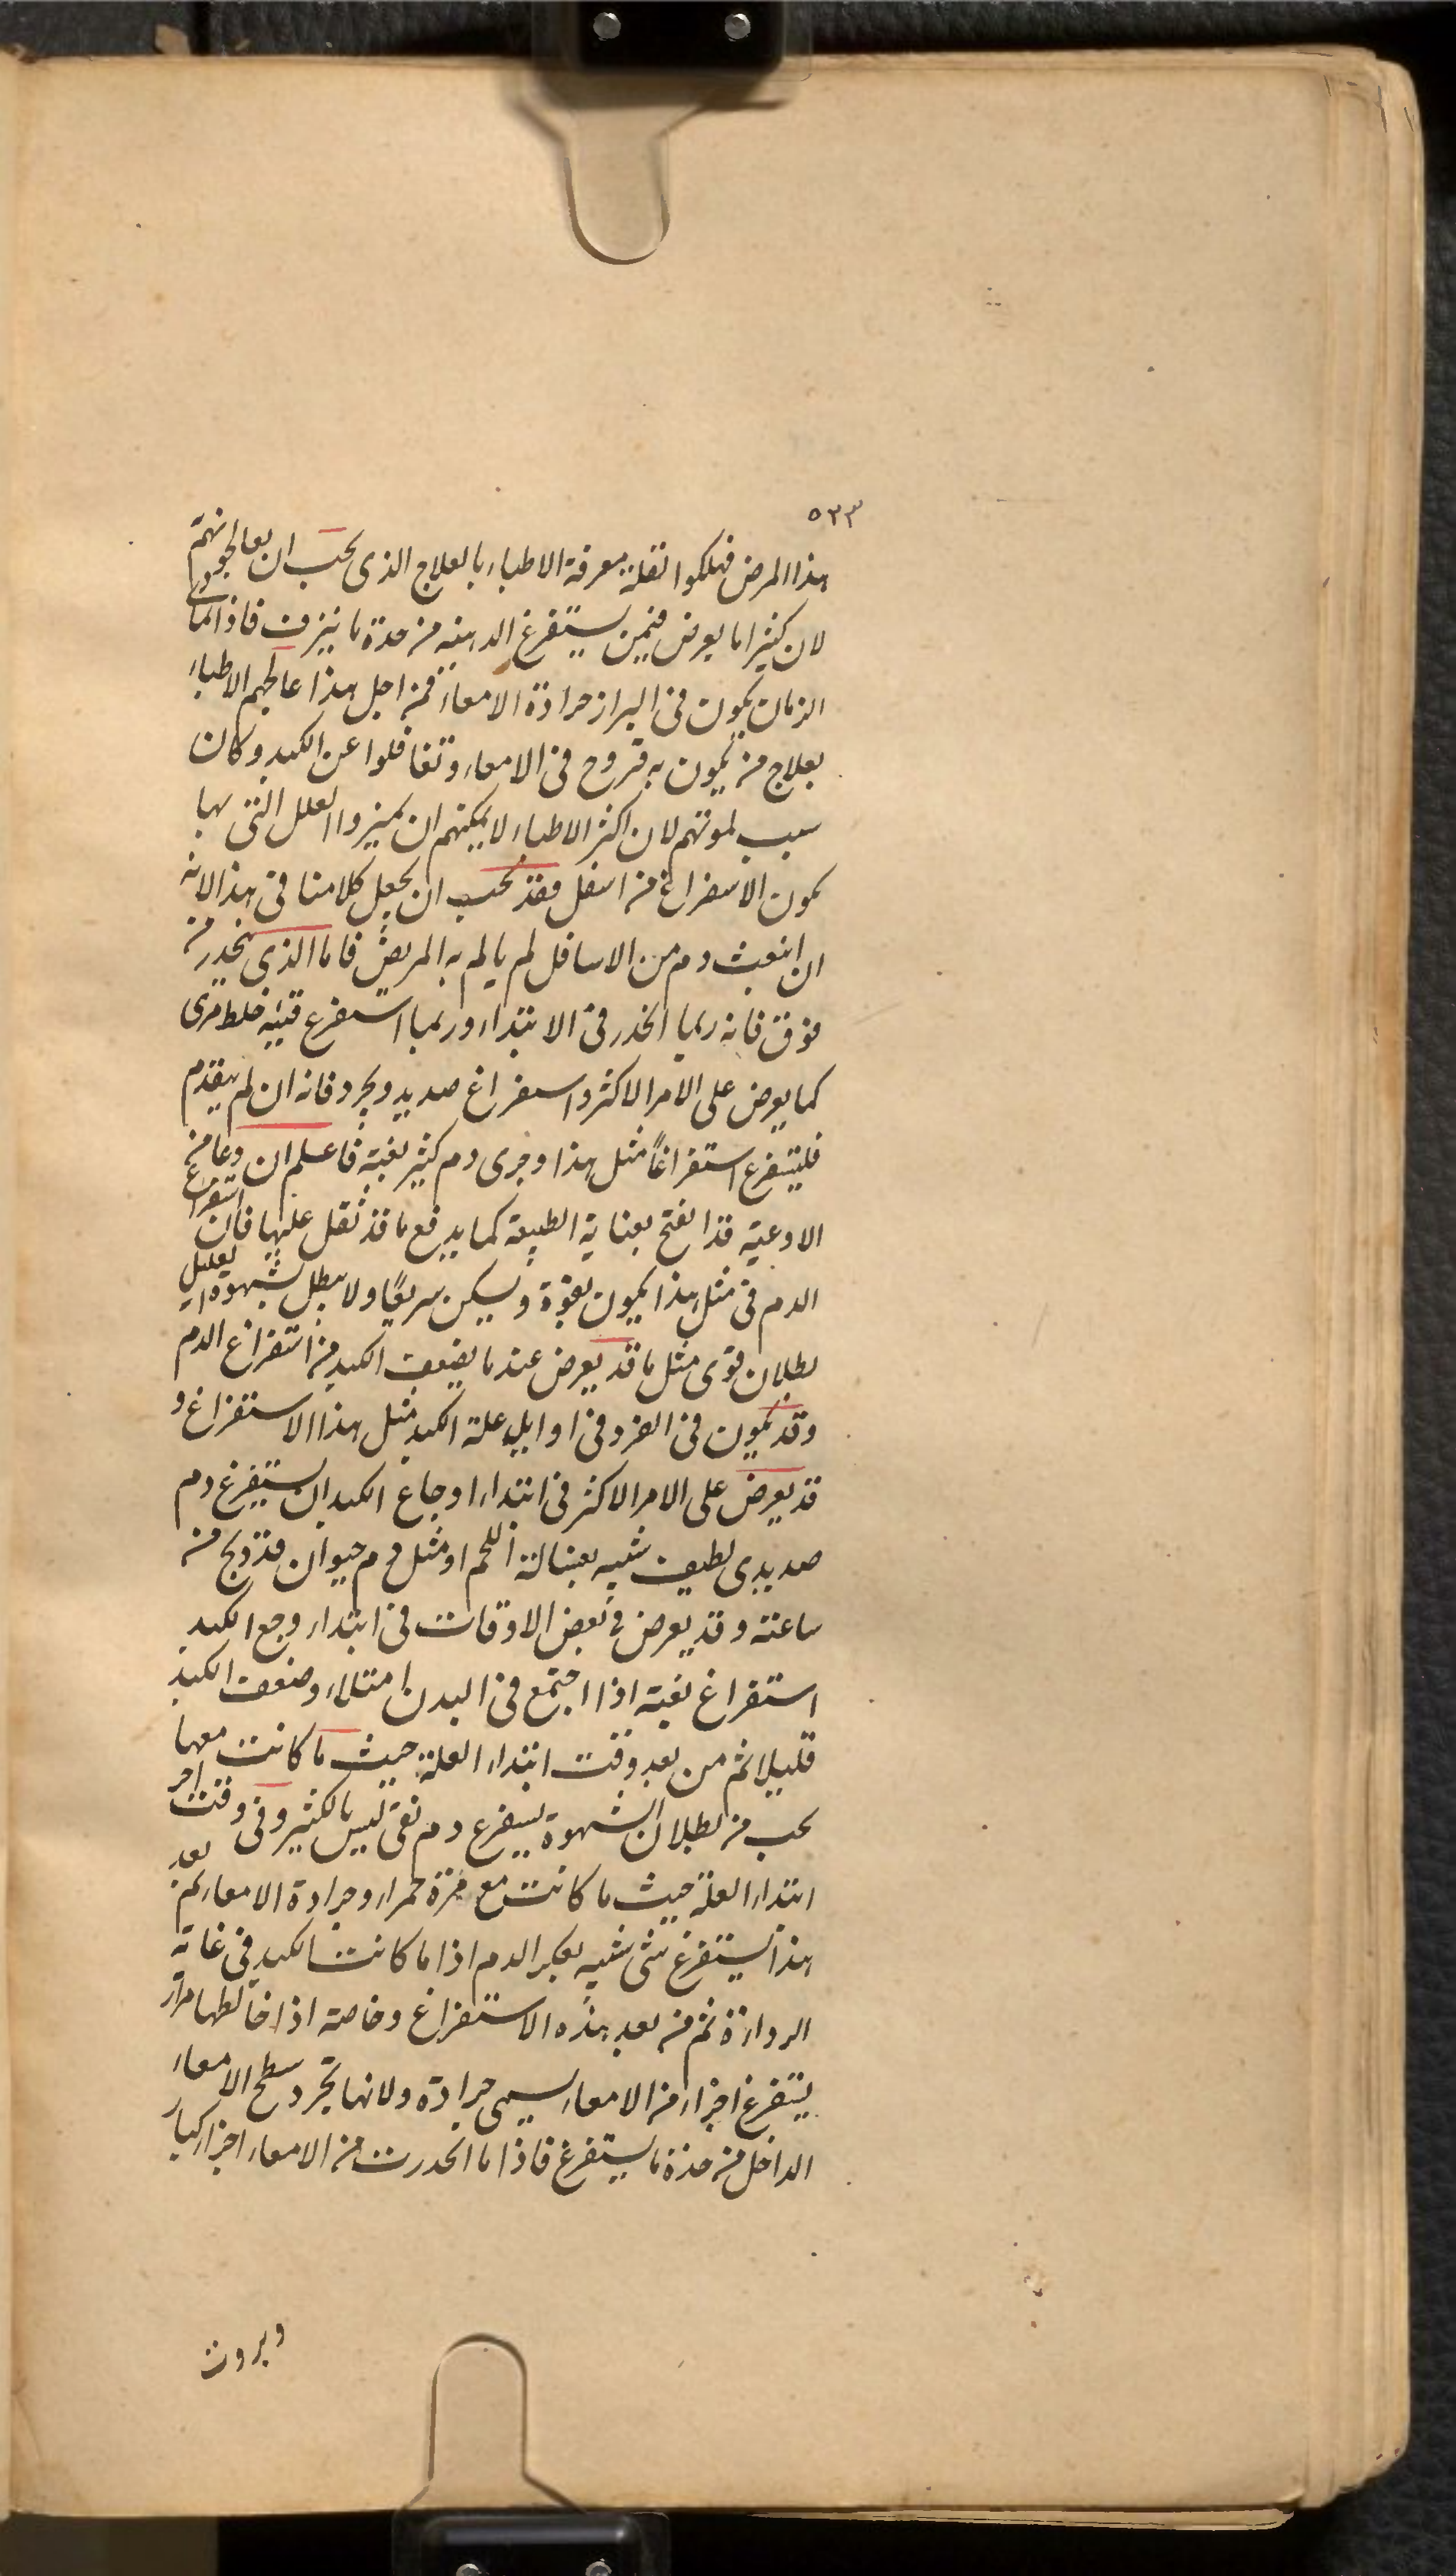 ٥٣٣
هذا المرض فهلكوا لقلة معرفة الاطباء بالعلاج الذى يجب ان يعالجونهم
لان كثيرا ما يعرض فيمن يستفرغ الد منه من حدة ما ينزف فاذا تمادى
الزمان يكون فى البراز جرادة الامعاء فمن اجل هذا عالجهم الاطباء
بعلاج من يكون به قروح فى الامعاء وتغافلوا عن الكبد وكان
سبب لموتهم لان اكثر الاطباء لا يمكنهم ان يميزوا العلل التى بها
يكون الاسفراغ من اسفل فقد يجب ان يجعل كلامنا فى هذا لانه
ان انبعث دم من الاسافل لم يالم به المريض فاما الذى ينحدر من
فوق فانه ربما انحدر فى الابتداء وربما استفرغ قيئه خلط مرى
كما يعرض على الامر الاكثر واسفراغ صديد ويجرد فانه ان لم يتقدم
فليستفرغ استفراغاً مثل هذا وجرى دم كثير بغتة فاعلم ان وعا من
الاوعية قد انفتح بعناية الطبيعة كما يدفع ما قد ثقل عليها فان استفراغ
الدم فى مثل هذا يكون بقوة ويسكن سريعًا ولا يبطل شهوة العليل
بطلان قوى مثل ما قد يعرض عند ما يضعف الكبد من استفراغ الدم
وقد يكون فى الفرد فى اوايل علة الكبد مثل هذا الاستفراغ و
قد يعرض على الامر الاكثر فى ابتداء اوجاع الكبد ان يستفرغ دم
صديدى لطيف شبيه بغسالة اللحم او مثل دم حيوان قد ذبح من
ساعته وقد يعرض فى بعض الاوقات فى ابتداء وجع الكبد
استفراغ بغتة اذا اجتمع فى البدن امتلاء وضعف الكبد
قليلا ثم من بعد وقت ابتداء العلة حيث ما كانت معها
يجب من بطلان الشهوة يسفرغ دم نقى ليس بالكثير وفى وقت اخر
ابتداء العلة حيث ما كانت مع مرة حمراء وجرادة الامعاء ثم بعد
هذا يستفرغ شى شبيه بعكر الدم اذا ما كانت الكبد فى غاية
الرداءة ثم من بعد هذه الاستفراغ وخاصة اذا خالطها مرار
يستفرغ اجزاء من الامعاء يسمى جرادة ولانها تجرد سطح الامعاء
الداخل من حدة ما يستفرغ فاذا ما انحدرت من الامعاء اجزاء كبار